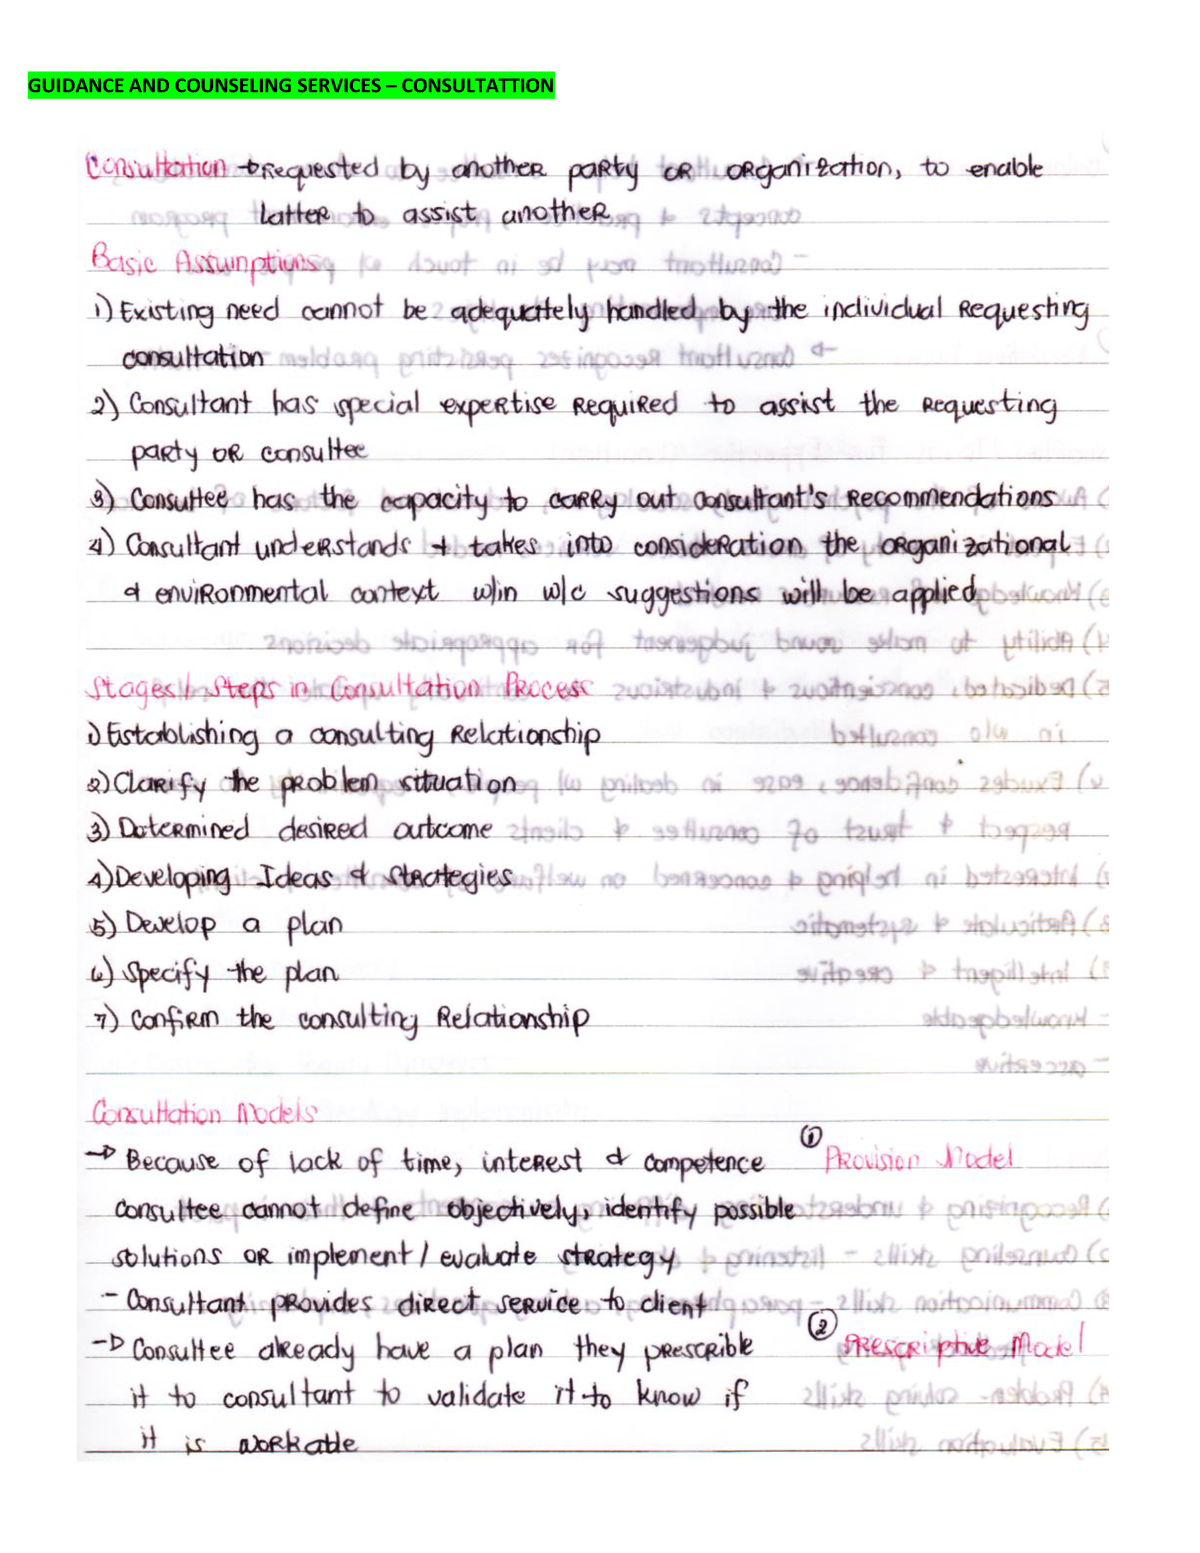 GUIDANCE AND COUNSELING SERVICES – CONSULTATTION
Consultation → requested by another party or organization, to enable
latter to assist another
Basic Assumptions
1) Existing need cannot be adequately handled by the individual requesting
consultation
2) Consultant has special expertise required to assist the requesting
party or consultee
3) Consultee has the capacity to carry out consultant's recommendations
4) Consultant understands & takes into consideration the organizational
& environmental context w/in w/c suggestions will be applied
Stages / Steps in Consultation Process
1) Establishing a consulting relationship
2) Clarify the problem situation
3) Determined desired outcome
4) Developing Ideas & Strategies
5) Develop a plan
6) Specify the plan
7) Confirm the consulting Relationship
Consultation Models
→ Because of lack of time, interest & competence ① Provision Model
consultee cannot define objectively, identify possible
solutions or implement / evaluate strategy
- Consultant provides direct service to client
→ Consultee already have a plan they prescrible ② Prescriptive Model
it to consultant to validate it to know if
it is workable